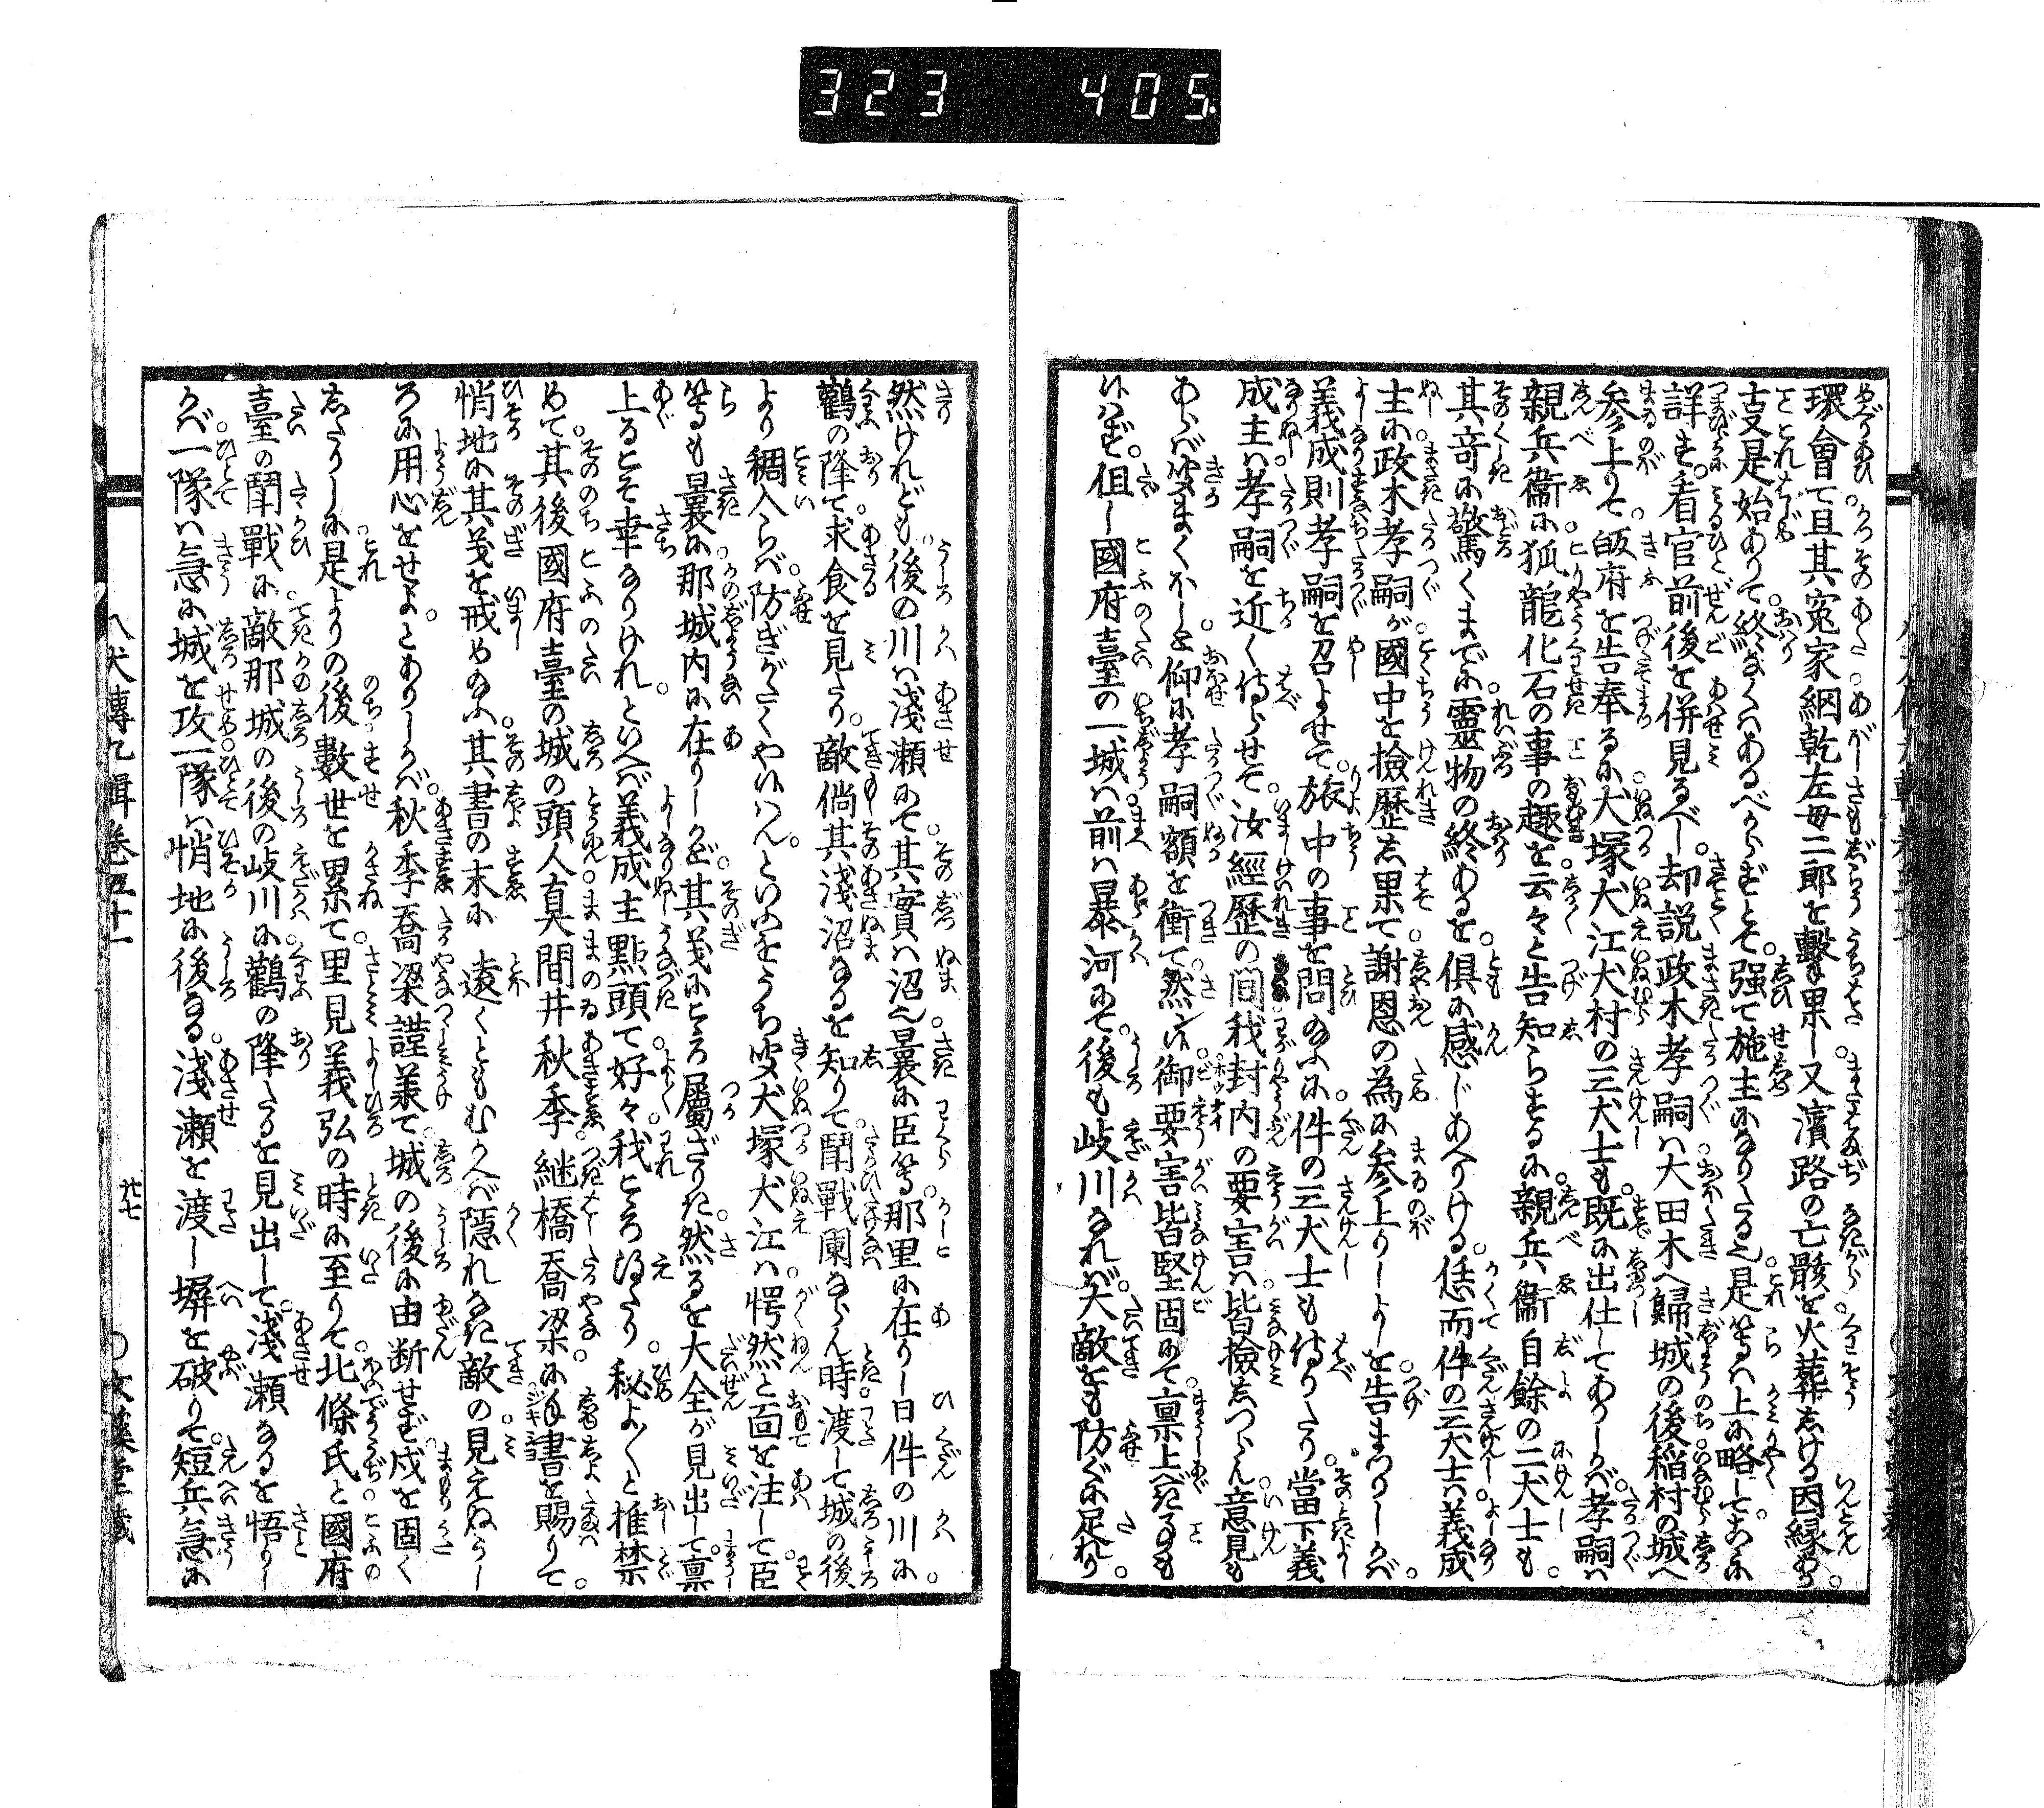 323 405
環會て且其寃家網乾左母二郎を撃果し又濱路の亡骸を火葬しける因縁あり
叓是始ありて終なくはあるべからずとて強て施主になりたる也是等は上に略してこゝに
詳す看官前後を併見るべし却説政木孝嗣は大田木へ歸城の後稲村の城へ
参上りて皈府を告奉るに犬塚犬江犬村の三犬士も既に出仕してありしかば孝嗣は
親兵衞に狐龍化石の事の趣を云々と告知らするに親兵衞自餘の二犬士も
其竒に驚くまでに靈物の終あるを倶に感じあへりける恁而件の三犬士は義成
主に政木孝嗣が國中を撿歴し果て謝恩の為に参上りしよしを告まつりしかば
義成則孝嗣を召よせて旅中の事を問給ふに件の三犬士も侍りたり當下義
成主は孝嗣を近く侍らせて汝經歴の間我封内の要害は皆撿しつらん意見も
あらば聞まくほしと仰に孝嗣額を衝て然ン候御要害皆堅固にて禀上べきよしも
候はず但し國府臺の一城は前は暴河にて後も岐川なれば大敵をも防ぐに足れり
然けれども後の川は淺瀬にて其實は沼也曩に臣等那里に在りし日件の川に
鸛の降て求食を見たり敵倘其淺沼なるを知りて鬪戰闌ならん時渡して城の後
より稠入らば防ぎがたくや候はんといふをうち聞犬塚犬江は愕然と面を注して臣
等も曩に那城内に在りしかど其義にこゝろ屬ざりき然るを大全が見出して禀
上るこそ幸なりけれといへば義成主點頭て好々我こゝろ得たり秘よ〳〵と推禁
めて其後國府臺の城の頭人真間井秋季継橋喬梁に手書を賜りて
悄地に其義を戒め給ふ其書の末に 遠くともむかへば隱れなき敵の見えぬうし
ろに用心をせよ とありしかば秋季喬梁謹美て城の後に由断せず戍を固く
したりしに是よりの後數世を累て里見義弘の時に至りて北條氏と國府
臺の鬪戰に敵那城の後の岐川に鸛の降たるを見出して淺瀬なるを悟りし
かば一隊は急に城を攻一隊は悄地に後なる淺瀬を渡し塀を破りて短兵急に
八犬傳九輯卷五十一
廿七
○文溪堂藏